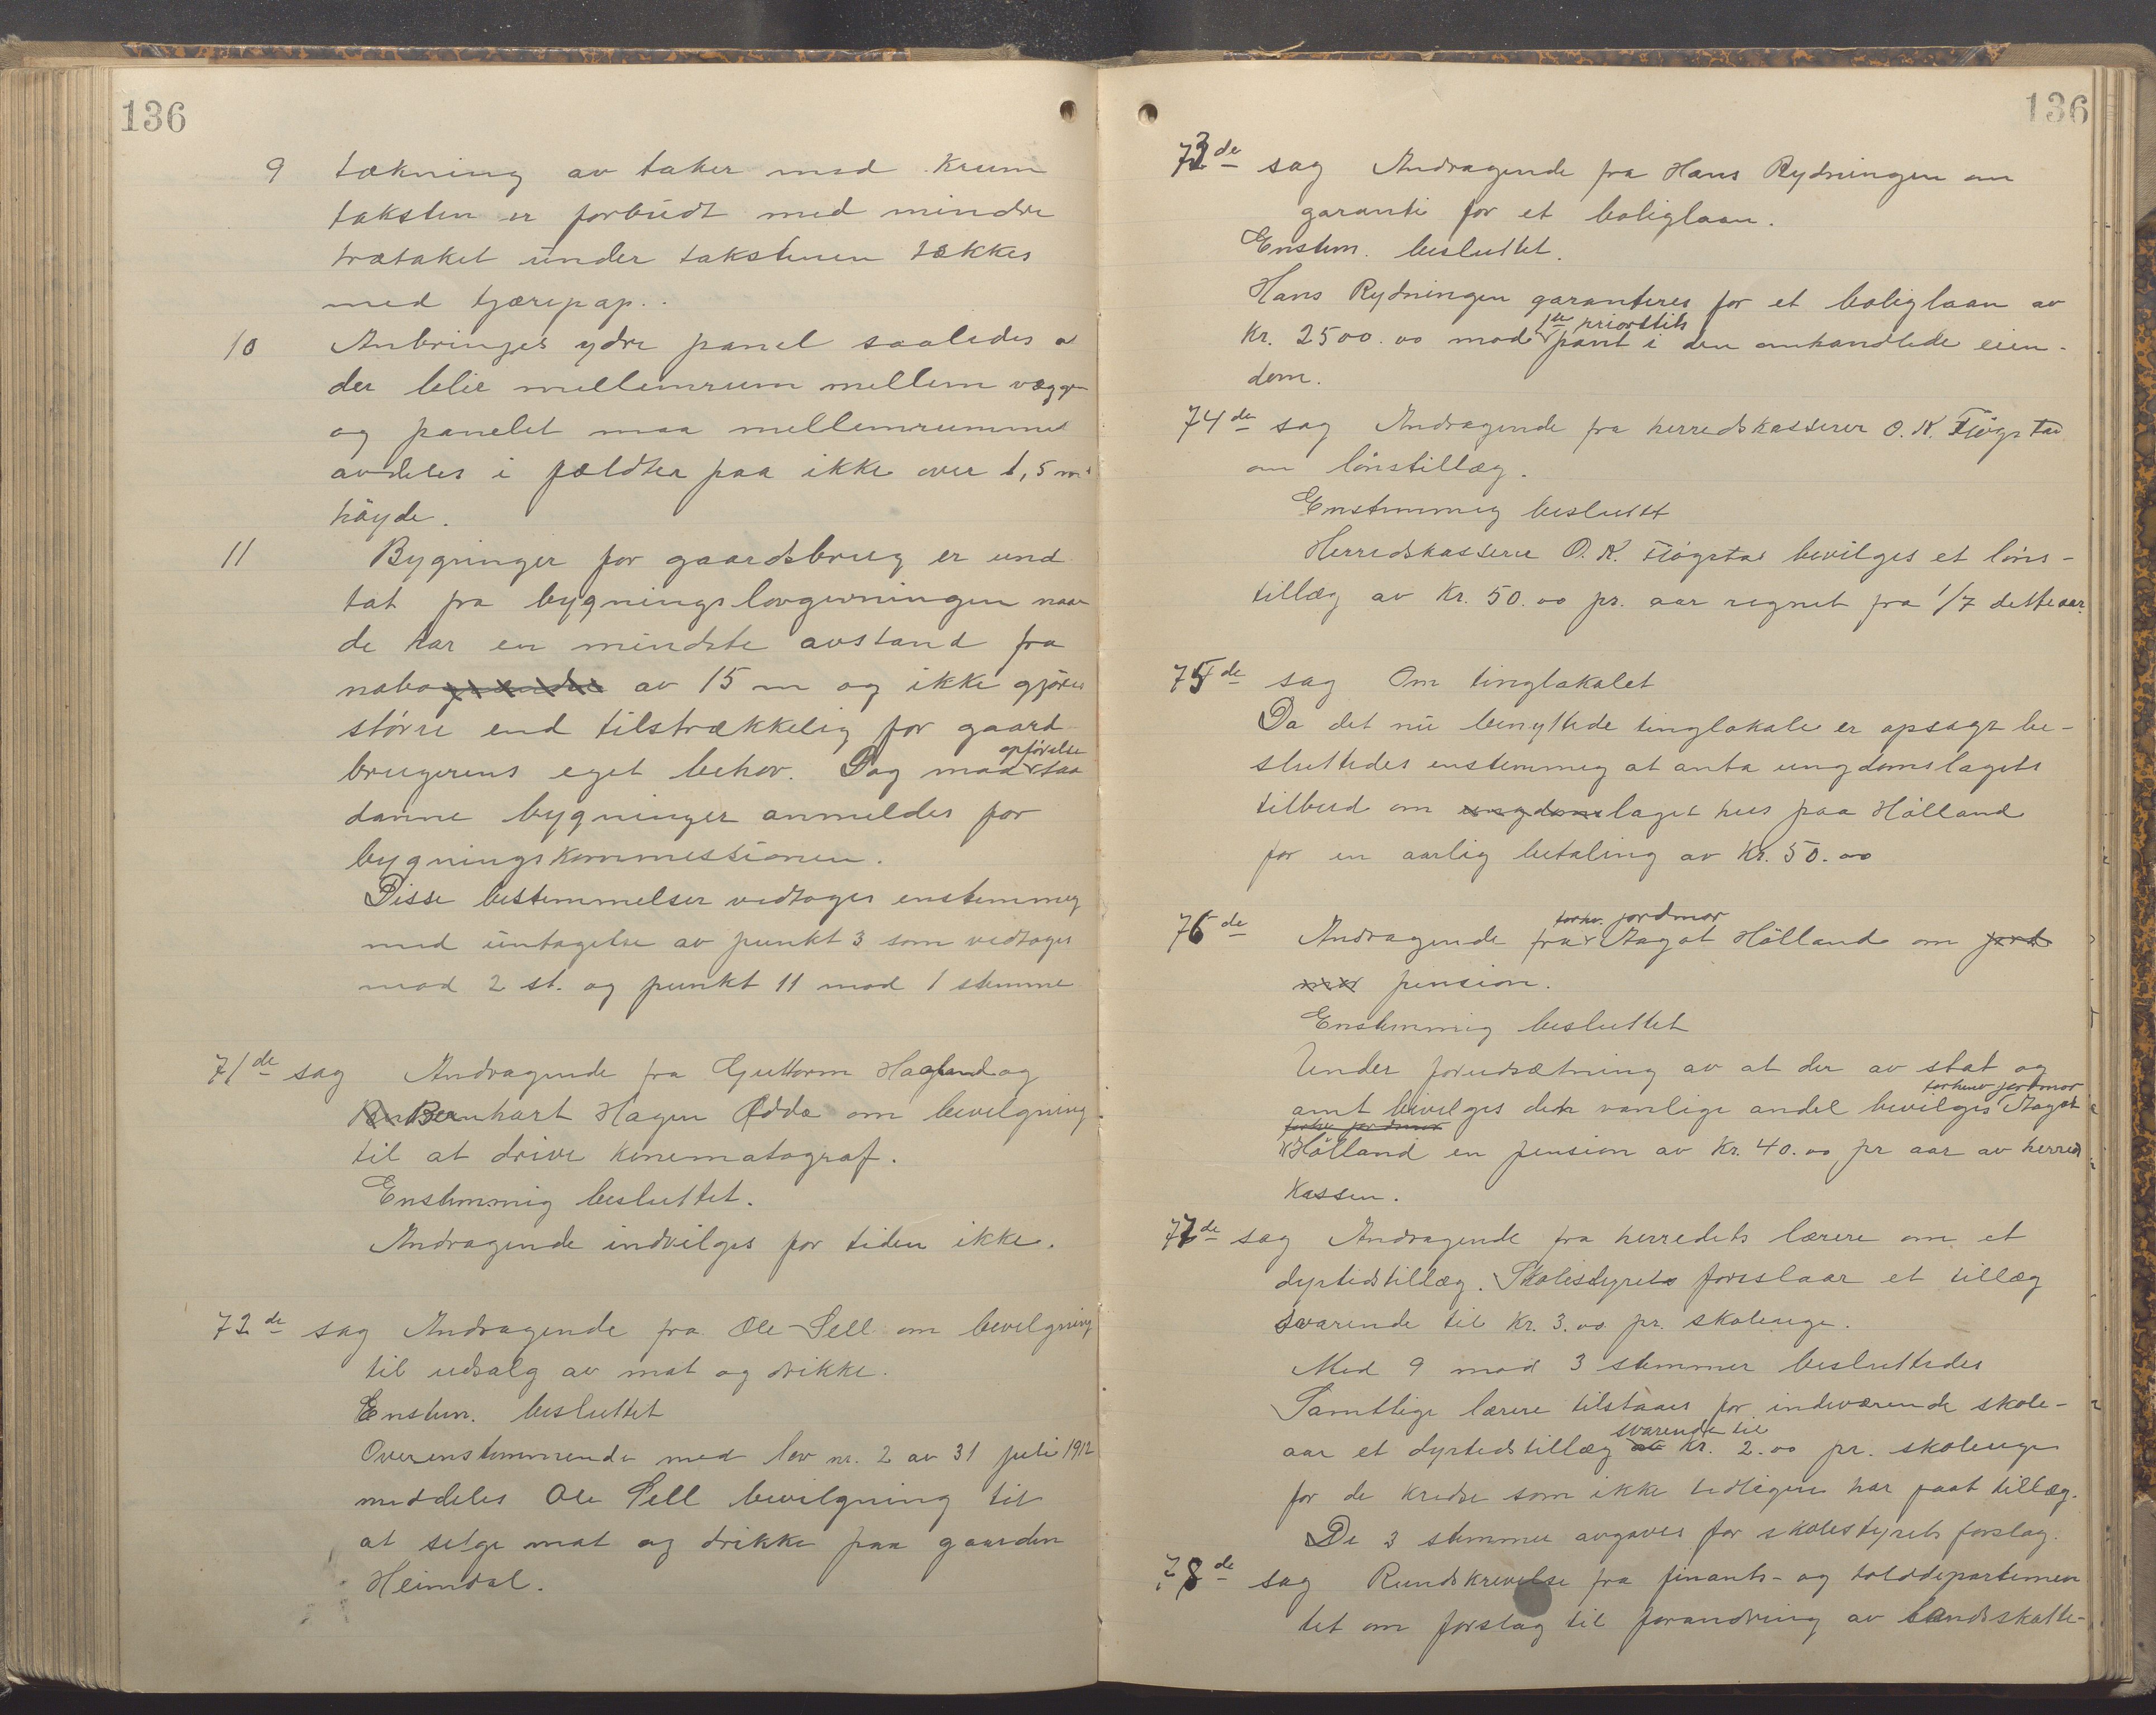 136
9 tækning av taker med krum
taksten er forbudt med mindre
trætaket under takstenen tækkes
med tjærepap.
10 Anbringes ydre panel saaledes at
der blir mellemrum mellem vægge
og panelet maa mellemrummet
avdeles i fældter paa ikke over 1,5 m
høyde.
11 Bygninger for gaardsbrug er und
tat fra bygningslovgivningen naar
de har en mindste avstand fra
nabogrænder av 15 m og ikke gjøres
større end tilstrækkelig for gaard
brugerens eget behov. Dog maa opførelse saa
danne bygninger anmeldes for
bygningskommissionen.
Disse bestemmelser vedtoges enstemmig
med untagelse av punkt 3 som vedtoges
mod 2 st. og punkt 11 mod 1 stemme
71de sag Andragende fra Guttorm Hagland og
Bernhart Hagen Odda om bevilgning
til at drive kinematograf.
Enstemmig besluttet.
Andragende indvilges for tiden ikke.
72de sag Andragende fra Ole Sell om bevilgning
til udsalg av mat og drikke.
Enstem. besluttet
Overenstemmende med lov nr. 2 av 31 juli 1912
meddeles Ole Sell bevilgning til
at selge mat og drikke paa gaarden
Heimdal.
136
73de sag Andragende fra Hans Rydningen om
garanti for et boliglaan.
Enstem. besluttet.
Hans Rydningen garanteres for et boliglaan av
Kr. 2500.00 mod 1ste prioritets pant i den omhandlede eien-
dom.
74de sag Andragende fra herredskasserer O. K. Fløgstad
om lønstillæg.
Enstemmig besluttet
Herredskasserer O. K. Fløgstad bevilges et løns-
tillæg av Kr. 50.00 pr. aar regnet fra 1/7 dette aar.
75de sag Om tinglokalet
Da det nu benyttede tinglokale er opsagt be-
sluttedes enstemmig at anta ungdomslagets
tilbud om ungdomslaget hus paa Hølland
for en aarlig betaling av Kr. 50.00
76de Andragende fra forhv. jordmor Aagot Hølland om jord
mor pension.
Enstemmig besluttet
Under forudsætning av at der av stat og
amt bevilges den vanlige andel bevilges forhenv jordmor Aagot
forhv jordmor
Hølland en pension av Kr. 40.00 pr aar av herreds
kassen.
77de sag Andragende fra herredets lærere om et
dyrtidstillæg. Skolestyret foreslaar et tillæg
svarende til Kr. 3.00 pr. skoleuge.
Med 9 mod 3 stemmer besluttedes
Samtlige lærere tilstaaes for indeværende skole-
aar et dyrtidstillæg av svarende til Kr. 2.00 pr. skoleuge
for de kredse som ikke tidligere har faat tillæg.
De 3 stemmer avgaves for skolestyrets forslag.
78de sag Rundskrivelse fra finants- og tolddepartemen
tet om forslag til forandring av landsskatte-